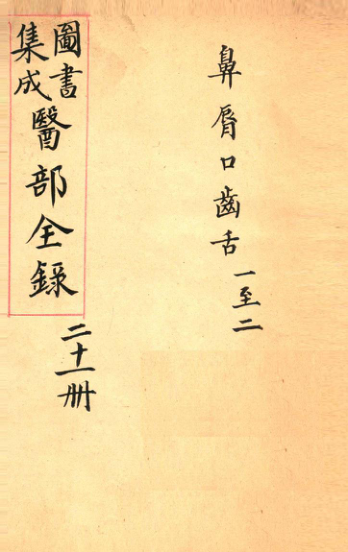 鼻脣口齒舌一至二
圖書
集成
醫部全錄
二十一册